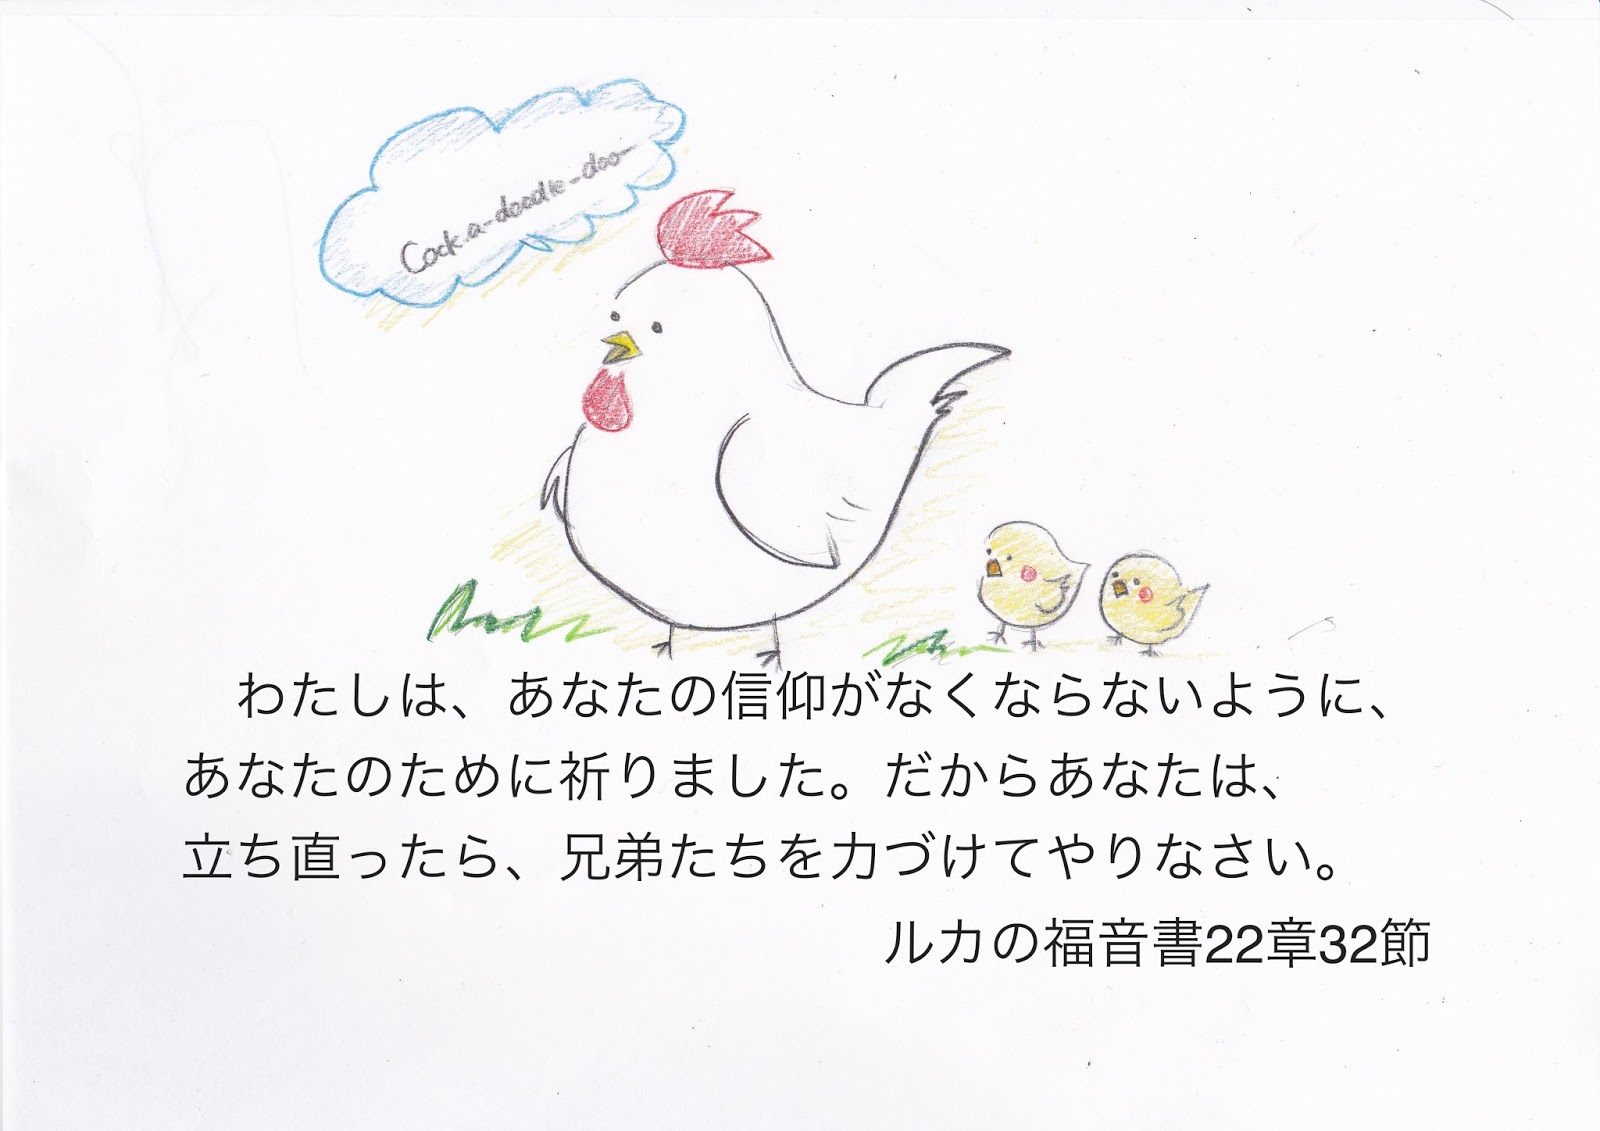 Cock-a-doodle-doo
わたしは、あなたの信仰がなくならないように、
あなたのために祈りました。だからあなたは、
立ち直ったら、兄弟たちを力づけてやりなさい。
ルカの福音書22章32節